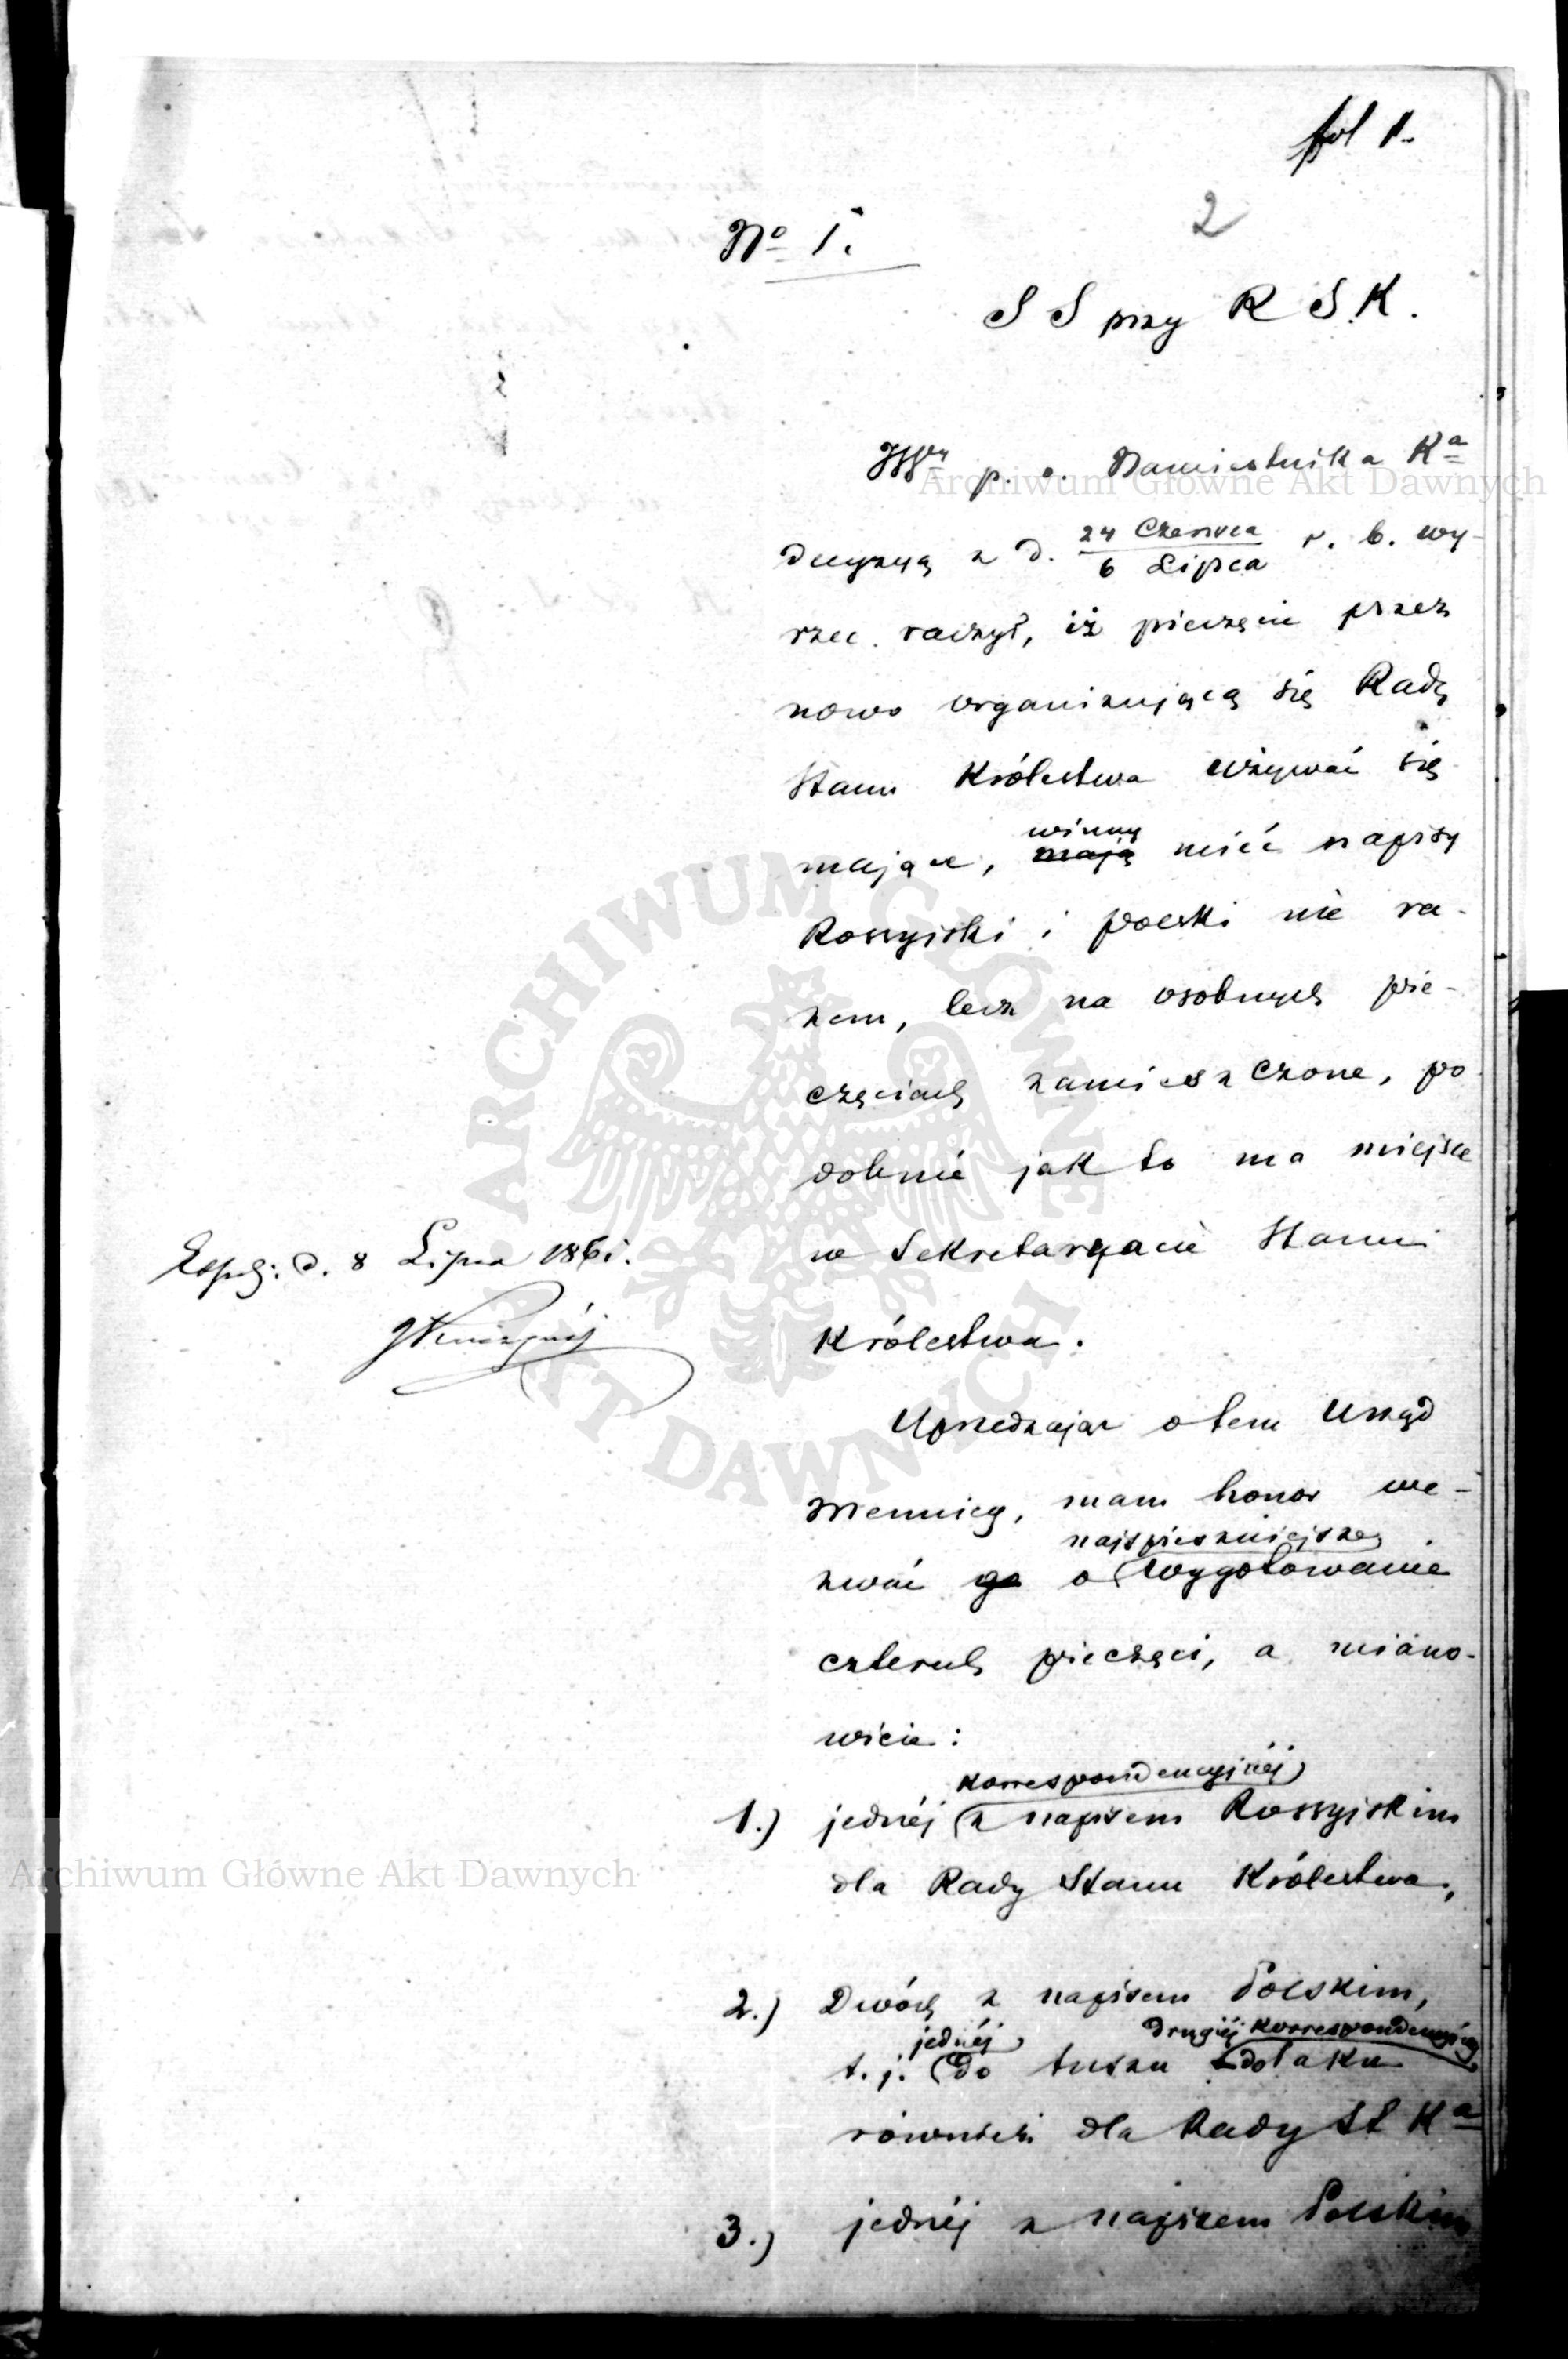 fol 1.
2
No 1.
S S przy R S.K.
p. o. Namiestnika Ka
decyzyą z d. 24 Czerwca / 6 Lipca r. b. wy-
rzec raczył, iż pieczęcie przez
nowo organizującą się Radę
Stanu Królestwa używać się
mające, mają winny mieć napisy
Rossyjski i polski nie ra-
zem, lecz na osobnych pie-
częciach zamieszczone, po-
dobnie jak to ma miejsce
w Sekretaryacie Stanu
Królestwa.
Exped: d. 8 Lipca 1861.
Uprzedzając o tem Urząd
Mennicy, mam honor we-
najspieszniejsze
zwać go o wygotowanie
czterech pieczęci, a miano-
wicie:
korrespondencyjnéj
1.) jednéj z napisem Rossyjskim
dla Rady Stanu Królestwa,
2.) Dwóch z napisem Polskim,
jednéj drugiéj korrespondencyjnéj
t. j. do tuszu do laku
również dla Rady St Ka
3.) jednéj z napisem Polskim
Archiwum Główne Akt Dawnych
Archiwum Główne Akt Dawnych
ARCHIWUM GŁÓWNE AKT DAWNYCH